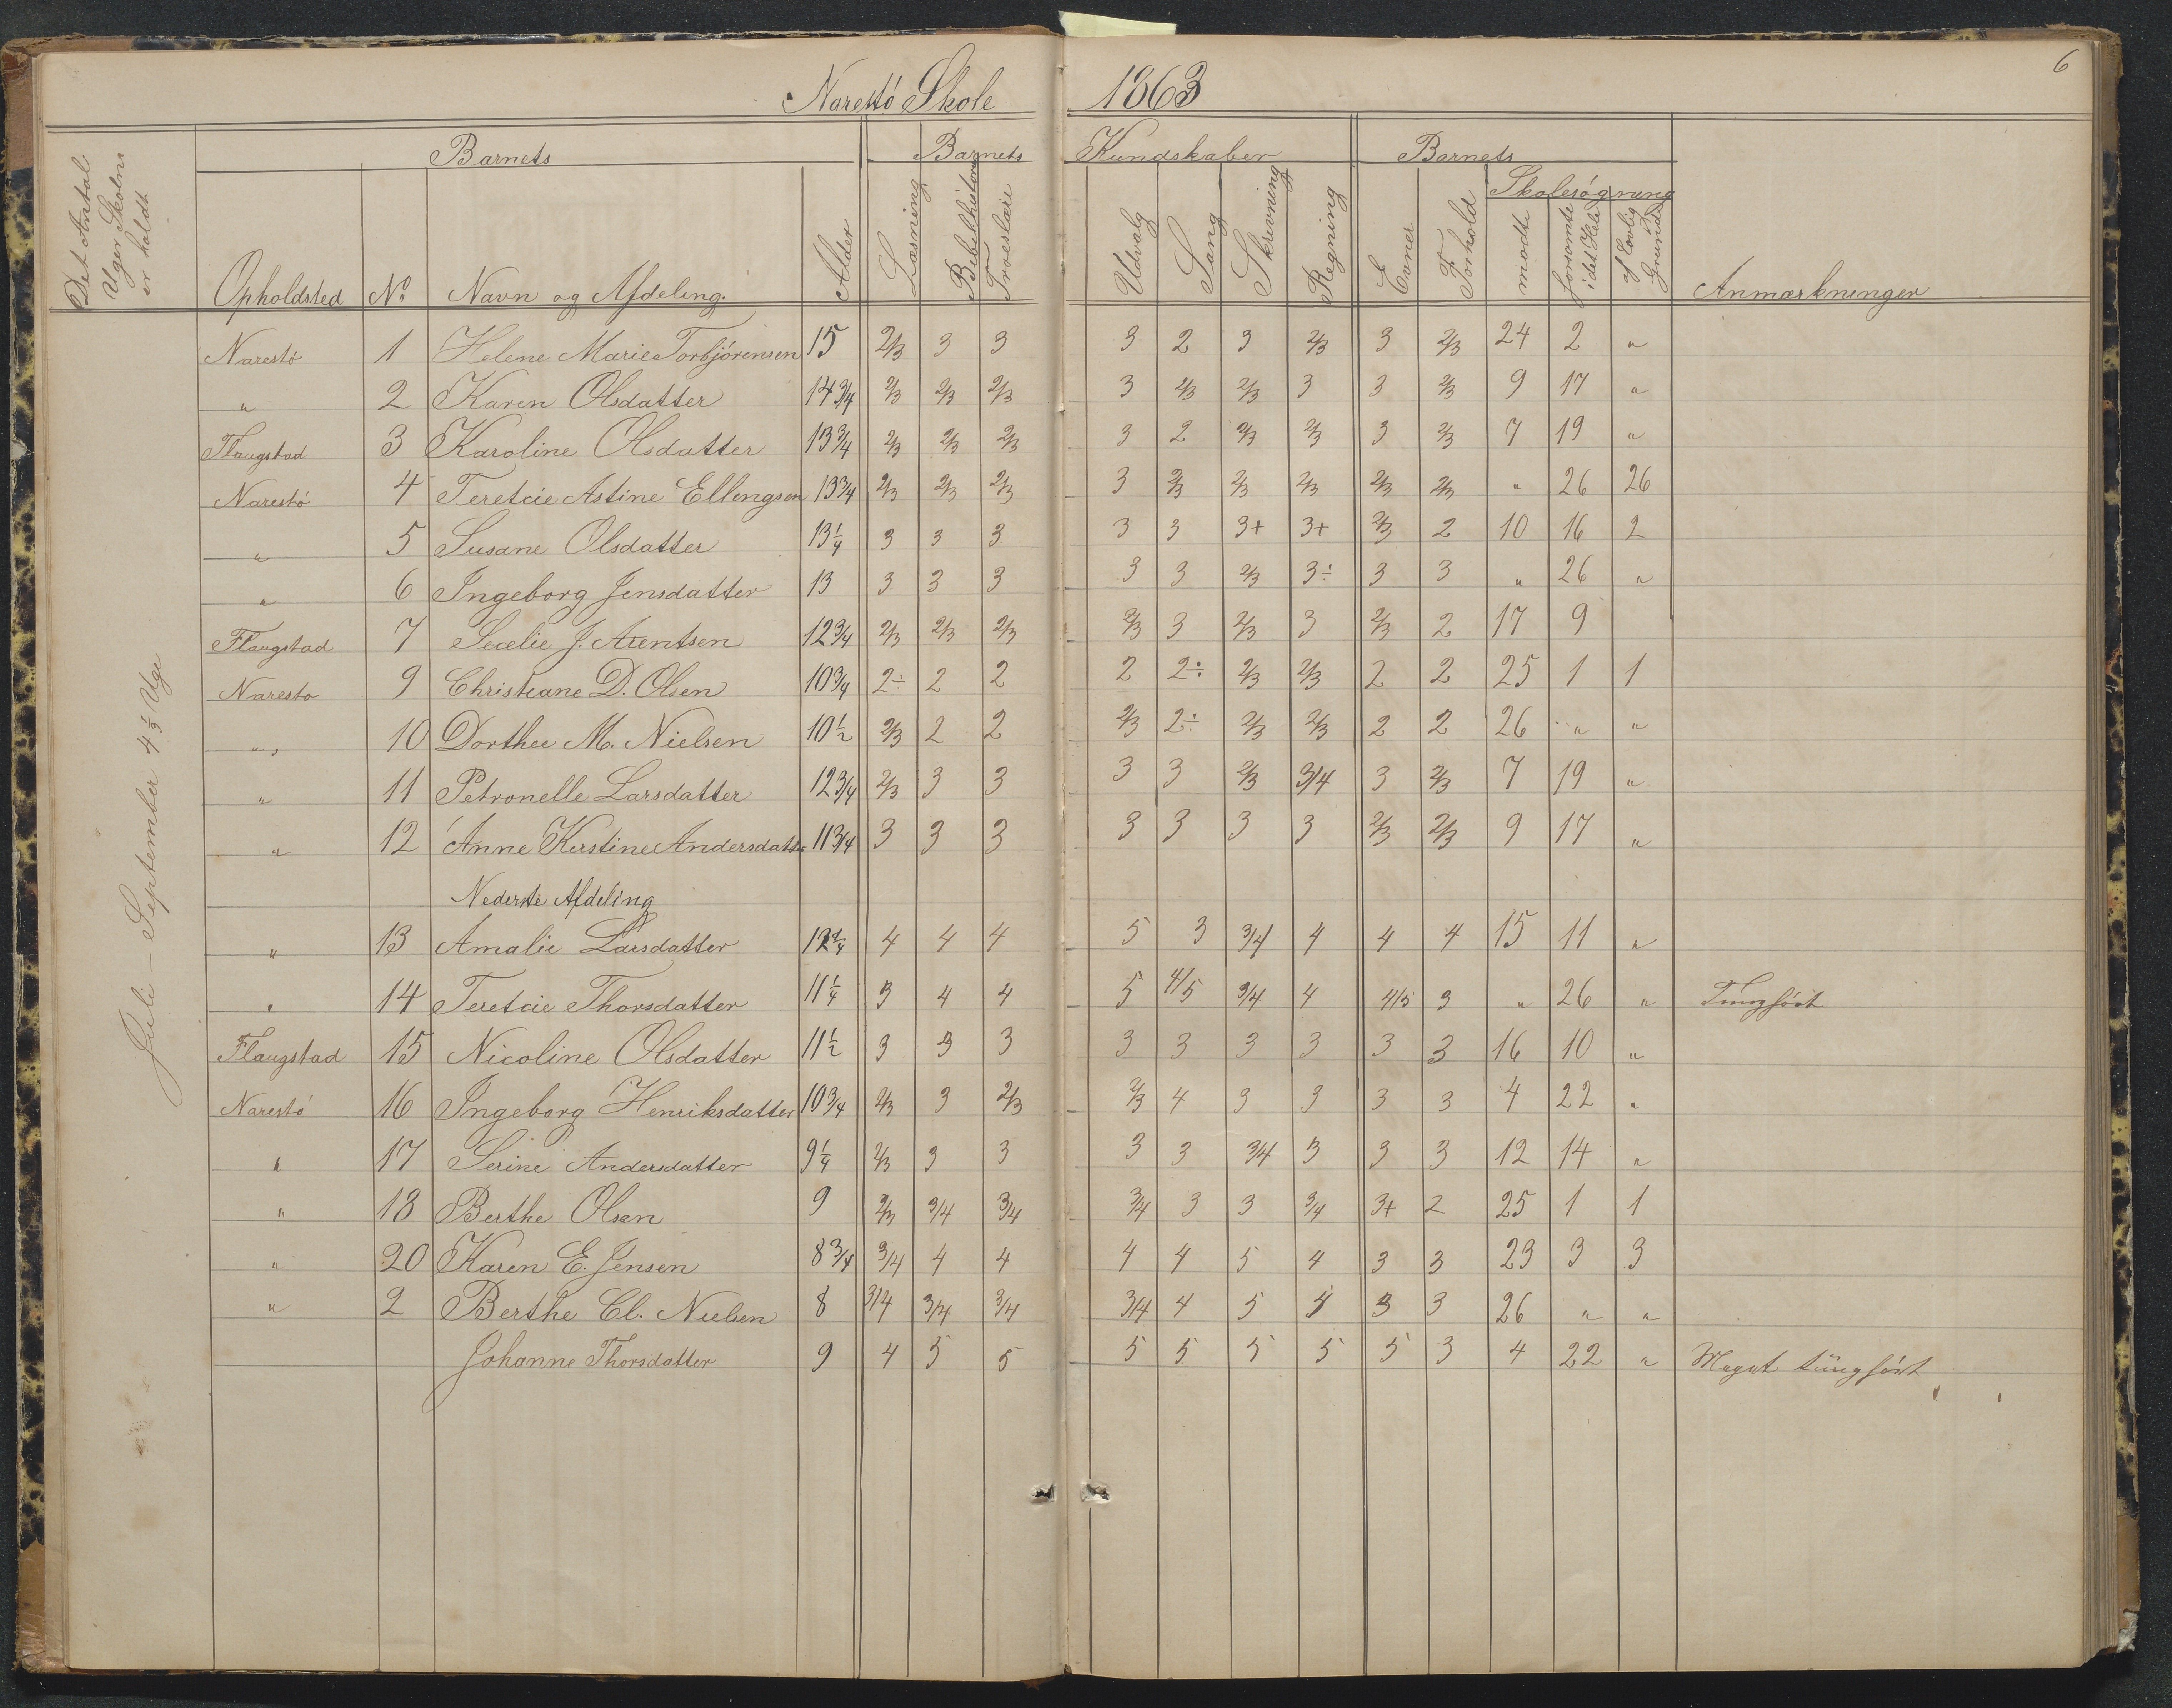 6
Narestö Skole 1863
Det Antal Uger Skolen er holdt
Barnets Barnets Kundskaber Barnets
Skolesøgning
Opholdsted No Navn og Afdeling. Alder Læsning Bibelhistorie Troeslære Udvalg Sang Skrivning Regning Evner Forhold mødt forsømte i det Hele af lovlig Grund Anmærkninger
Juli - September 4 1/3 Uge
Narestö 1 Helene Marie Torbjörensen 15 2/3 3 3 3 2 3 2/3 3 2/3 24 2 "
" 2 Karen Olsdatter 14 3/4 2/3 2/3 2/3 3 2/3 2/3 3 3 2/3 9 17 "
Flaugstad 3 Karoline Olsdatter 13 3/4 2/3 2/3 2/3 3 2 2/3 2/3 3 2/3 7 19 "
Narestö 4 Teretcie Astine Ellingsen 13 3/4 2/3 2/3 2/3 3 2/3 2/3 2/3 2/3 2/3 " 26 26
" 5 Susane Olsdatter 13 1/4 3 3 3 3 3 3+ 3+ 2/3 2 10 16 2
" 6 Ingeborg Jensdatter 13 3 3 3 3 3 2/3 3÷ 3 3 " 26 "
Flaugstad 7 Secelie J. Arentsen 12 3/4 2/3 2/3 2/3 2/3 3 2/3 3 2/3 2 17 9
Naresto 9 Christiane D. Olsen 10 3/4 2÷ 2 2 2 2÷ 2/3 2/3 2 2 25 1 1
" 10 Dorthee M. Nielsen 10 1/2 2/3 2 2 2/3 2÷ 2/3 2/3 2 2 26 " "
" 11 Petronelle Larsdatter 12 3/4 2/3 3 3 3 3 2/3 3/4 3 2/3 7 19 "
" 12 Anne Kirstine Andersdatter 11 3/4 3 3 3 3 3 3 3 2/3 2/3 9 17 "
Nederste Afdeling
" 13 Amalie Larsdatter 12 1/4 4 4 4 5 3 3/4 4 4 4 15 11 "
" 14 Teretcie Thorsdatter 11 1/4 3 4 4 5 4/5 3/4 4 4/5 3 " 26 " Tungfört
Flaugstad 15 Nicoline Olsdatter 11 1/2 3 3 3 3 3 3 3 3 3 16 10 "
Narestö 16 Ingeborg Henriksdatter 10 3/4 2/3 3 2/3 2/3 4 3 3 3 3 4 22 "
" 17 Serine Andersdatter 9 1/4 2/3 3 3 3 3 3/4 3 3 3 12 14 "
" 18 Berthe Olsen 9 2/3 3/4 3/4 3/4 3 3 3/4 3+ 2 25 1 1
" 20 Karen E. Jensen 8 3/4 3/4 4 4 4 4 5 4 3 3 23 3 3
" 2 Berthe Cl. Nielsen 8 3/4 3/4 3/4 3/4 4 5 4 3 3 26 " "
Johanne Thorsdatter 9 4 5 5 5 5 5 5 5 3 4 22 " Meget tungfört